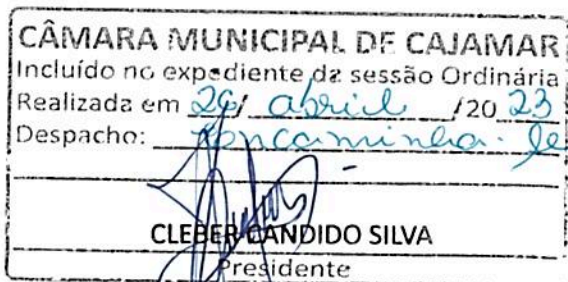 CÂMARA MUNICIPAL DE CAJAMAR
Incluído no expediente da sessão Ordinária
Realizada em 26/ abril /20 23
Despacho: Encaminha-se
CLEBER CANDIDO SILVA
Presidente